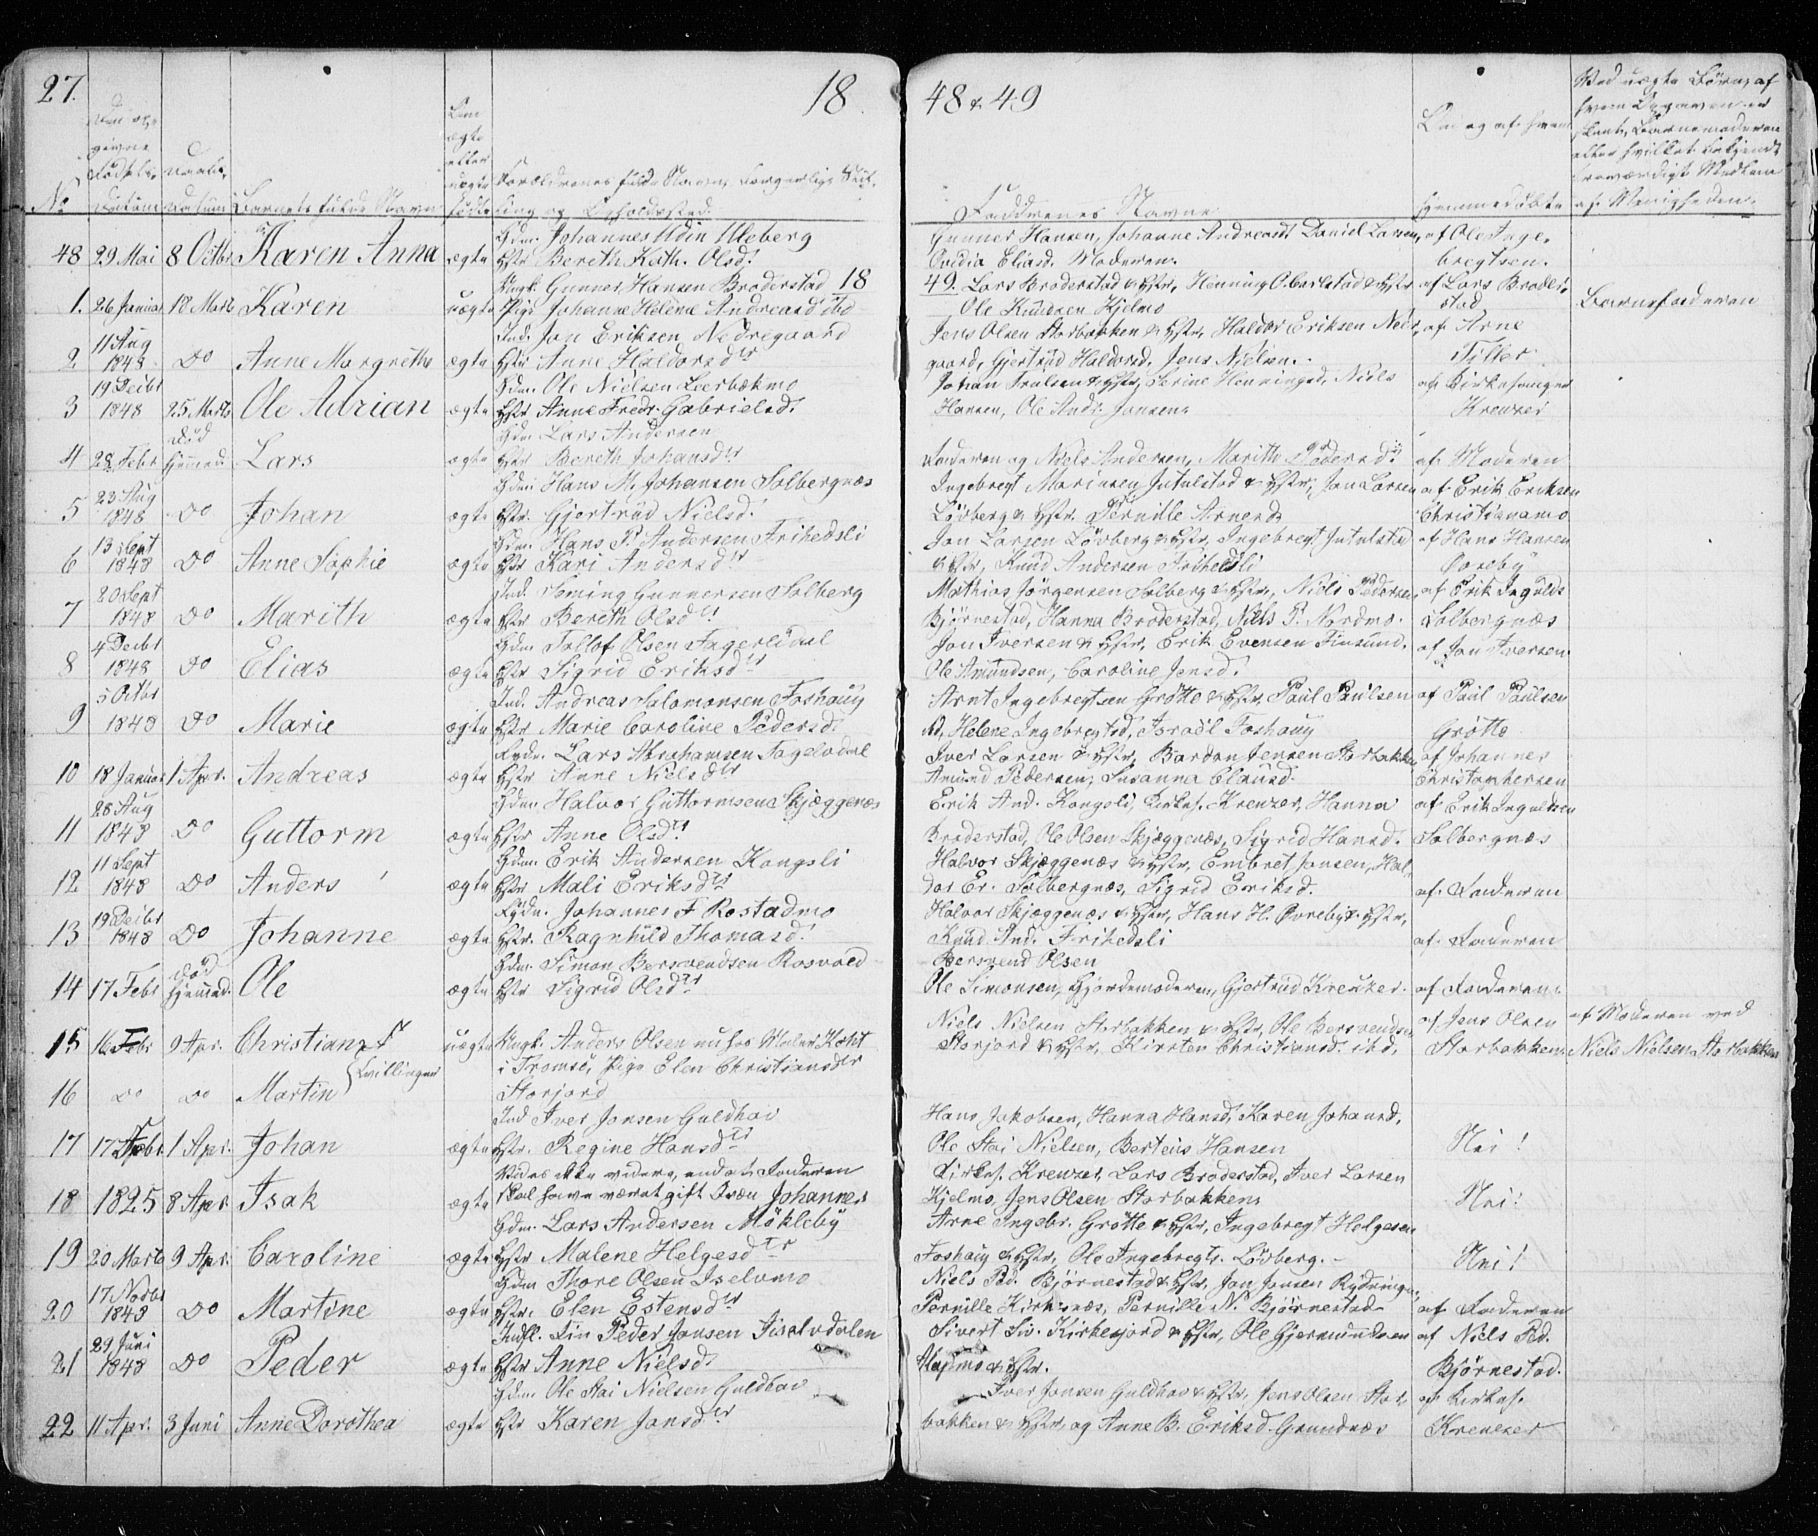 27.
18
48 & 49
No
Den op-
givne
Fødsels-
Datum
Daabs-
Datum
Barnets fulde Navn
Om
ægte
eller
uægte
født
Forældrenes fulde Navn, borgerlige Stil-
ling og Opholdssted.
Faddrenes Navne
Om og af hvem
hjemmedøbte
Ved uægte Børn, af
hvem Opgaven er
skeet, Barnemoderen
eller hvilket bekjendt
troværdigt Medlem
af Menigheden.
48 29 Mai 8 Octbr Karen Anna ægte
Hdm. Johannes Udin Uleberg
Hstr Bereth Kath. Olsd.
Gunner Hansen, Johanne Andreasd. Daniel Larsen,
Ovidia Eliasd. Moderen.
af Ole Inge-
bregtsen.
18
49.
1. 26 Januar 18 Marts Karen uægte
Ungk. Gunner Hansen Broderstad
Pige Johanne Helene Andreasd ibd
Lars Broderstad & Hstr, Henning O. Carlstad & Hstr
Ole Knudsen Hjelmo
af Lars Broder-
stad
Barnefaderen
2 11 Aug 1848 Do Anne Margrethe ægte
Ind. Jon Eriksen Nedregaard
Hstr Anne Haldorsdtr
Jens Olsen Storbakken & Hstr, Haldor Eriksen Neder-
gaard, Gjertrud Haldorsd, Jens Nielsen.
af Arne
Tiller
3 19 Decbr 1848 25 Marts Ole Adrian ægte
Hdm. Ole Nielsen Leerbækmo
Hstr Anne Fredr. Gabrielsd.
Johan Trulsen & Hstr, Serine Henningsd, Niels
Hansen, Ole Andr. Jonsen.
af Kirkesanger
Kreutzer
4 28 Febr død hjemmed. Lars ægte
Hdm Lars Andersen
Hstr Bereth Johansdtr
Faderen og Niels Andersen, Marithe Pedersdtr
af Moderen
5 23 Aug 1848 Do Johan ægte
Hdm: Hans M. Johansen Solbergnæs
Hstr. Gjertrud Nielsd.
Ingebregt Mariusen Jutulstad & Hstr, Jon Larsen
Løvberg & Hstr. Pernille Arnesd
af Erik Eriksen
Christianamo
6 13 Sept 1848 Do Anne Sophie ægte
Hdm. Hans P. Andersen Frihedsli
Hstr Kari Andersdtr
Jon Larsen Løvberg & Hstr, Ingebregt Jutulstad
& Hstr, Knud Andersen Frihedsli
af Hans Hansen
Øvreby
7 20 Sept 1848 Do Marith ægte
Ind. Heming Gunnersen Solberg
Hstr Bereth Olsdtr
Mathias Jørgensen Solberg & Hstr, Niels Pedersen
Bjørnestad, Hanna Broderstad, Niels P. Nordmo.
af Erik Ingulds
Solbergnæs
8 4 Decbr 1848 Do Elias ægte
Hdm Tollof Olsen Fagerlidal
Hstr Sigrid Eriksdtr
Jon Iversen & Hstr, Erik Evensen Finsund.
Ole Amundsen, Caroline Jensd.
af Jon Iversen
9 5 Octbr 1848 Do Marie ægte
Ind. Andreas Salomonsen Foshaug
Hstr Marie Caroline Pedersd.
Arnt Ingebregtsen Grøtte & Hstr, Paul Paulsen
ibd, Helene Ingebregtsd, Israël Foshaug
af Paul Paulsen
Grøtte
10 18 Januar 1 Apr. Andreas ægte
Rydn. Lars Abrahamsen Fageledal
Hstr Anne Nielsdtr
Iver Larsen & Hstr, Bardon Jensen Storbakken
Amund Pedersen, Susanna Clausd.
af Johannes
Christophersen
11 28 Aug 1848 Do Guttorm ægte
Hdm. Halvor Guttormsen Skjæggenæs
Hstr Anne Olsdtr
Erik And. Kongsli, Kirkes. Kreutzer, Hanna
Broderstad, Ole Olsen Skjæggenæs, Sigrid Hansd.
af Erik Inguldsen
Solbergnæs
12 11 Sept 1848 Do Anders ægte
Hdm. Erik Andersen Kongsli
Hstr Mali Eriksdtr
Halvor Skjæggenæs & Hstr, Embret Jonsen, Hal-
dor Er. Solbergnæs, Sigrid Eriksd.
af Faderen
13 19 Decbr 1848 Do Johanne ægte
Rydn. Johannes F Rostadmo
Hstr. Ragnhild Thomasd.
Halvor Skjæggenæs & Hstr, Hans H. Øvreby & Hstr,
Knud And. Frihedsli
af Faderen
14 17 Febr død hjemmed. Ole ægte
Hdm. Simon Bersvendsen Rosvold
Hstr Sigrid Olsdtr
Bersvend Olsen
Ole Simonsen, Gjordemoderen, Gjertrud Kreutzer.
af Faderen
15 16 Febr 9 Apr. Christian uægte
Ungk. Anders Olsen nu hos Maler Koht
i Tromsø, Pige Elen Christiansdtr
Storjord
Niels Nielsen Storbakken & Hstr, Ole Bersvendsen
Storjord & Hstr, Kirsten Christiansd. ibd,
af Jens Olsen
Storbakken
af Moderen ved
Niels Nielsen Storbakken
Tvillinger
16 do do Martin
17 17 Febr 1 Apr. Johan ægte
Ind Iver Jonsen Guldhav
Hstr. Regine Hansdtr
Hans Jakobsen, Hanna Hansd, Karen Johansd,
Ole Stai Nielsen, Berteus Hansen
Nei!
18 1825 8 Apr. Isak ægte
vides ikke videre, end at Faderen
skal have været gift Qvæn Johannes
Kirkes. Kreutzer, Lars Broderstad, Iver Larsen
Hjelmo, Jens Olsen Storbakken
Nei!
19 20 Marts 9 Apr. Caroline ægte
Hdm. Lars Andersen Møkleby
Hstr Malene Helgesdtr
Arne Ingebr. Grøtte & Hstr, Ingebregt Helgesen
Foshaug & Hstr, Ole Ingebregts. Løvberg.
Nei!
20 17 Novbr 1848 Do Martine ægte
Hdm Thore Olsen Iselvmo
Hstr. Elen Estensdtr
Niels Ped. Bjørnestad & Hstr, Jon Jonsen Rydninge,
Pernille Kirkenæs, Pernille N. Bjørnestad
af Faderen
21 29 Juni 1848 Do Peder ægte
Indfl. Fin Peder Jonsen Iselvdalen
Hstr Anne Nielsd.
Sivert Siv. Kirkesjord & Hstr, Ole Gjermundsen
Stapmo & Hstr.
af Niels Ped.
Bjørnestad.
22 11 Apr. 3 Juni Anne Dorothea ægte
Hdm Ole Stai Nielsen Guldhav
Hstr Karen Jonsdtr
Iver Jonsen Guldhav & Hstr, Jens Olsen Stor-
bakken & Hstr, og Anne B. Eriksd. Grundnæs
af Kirkes.
Kreutzer